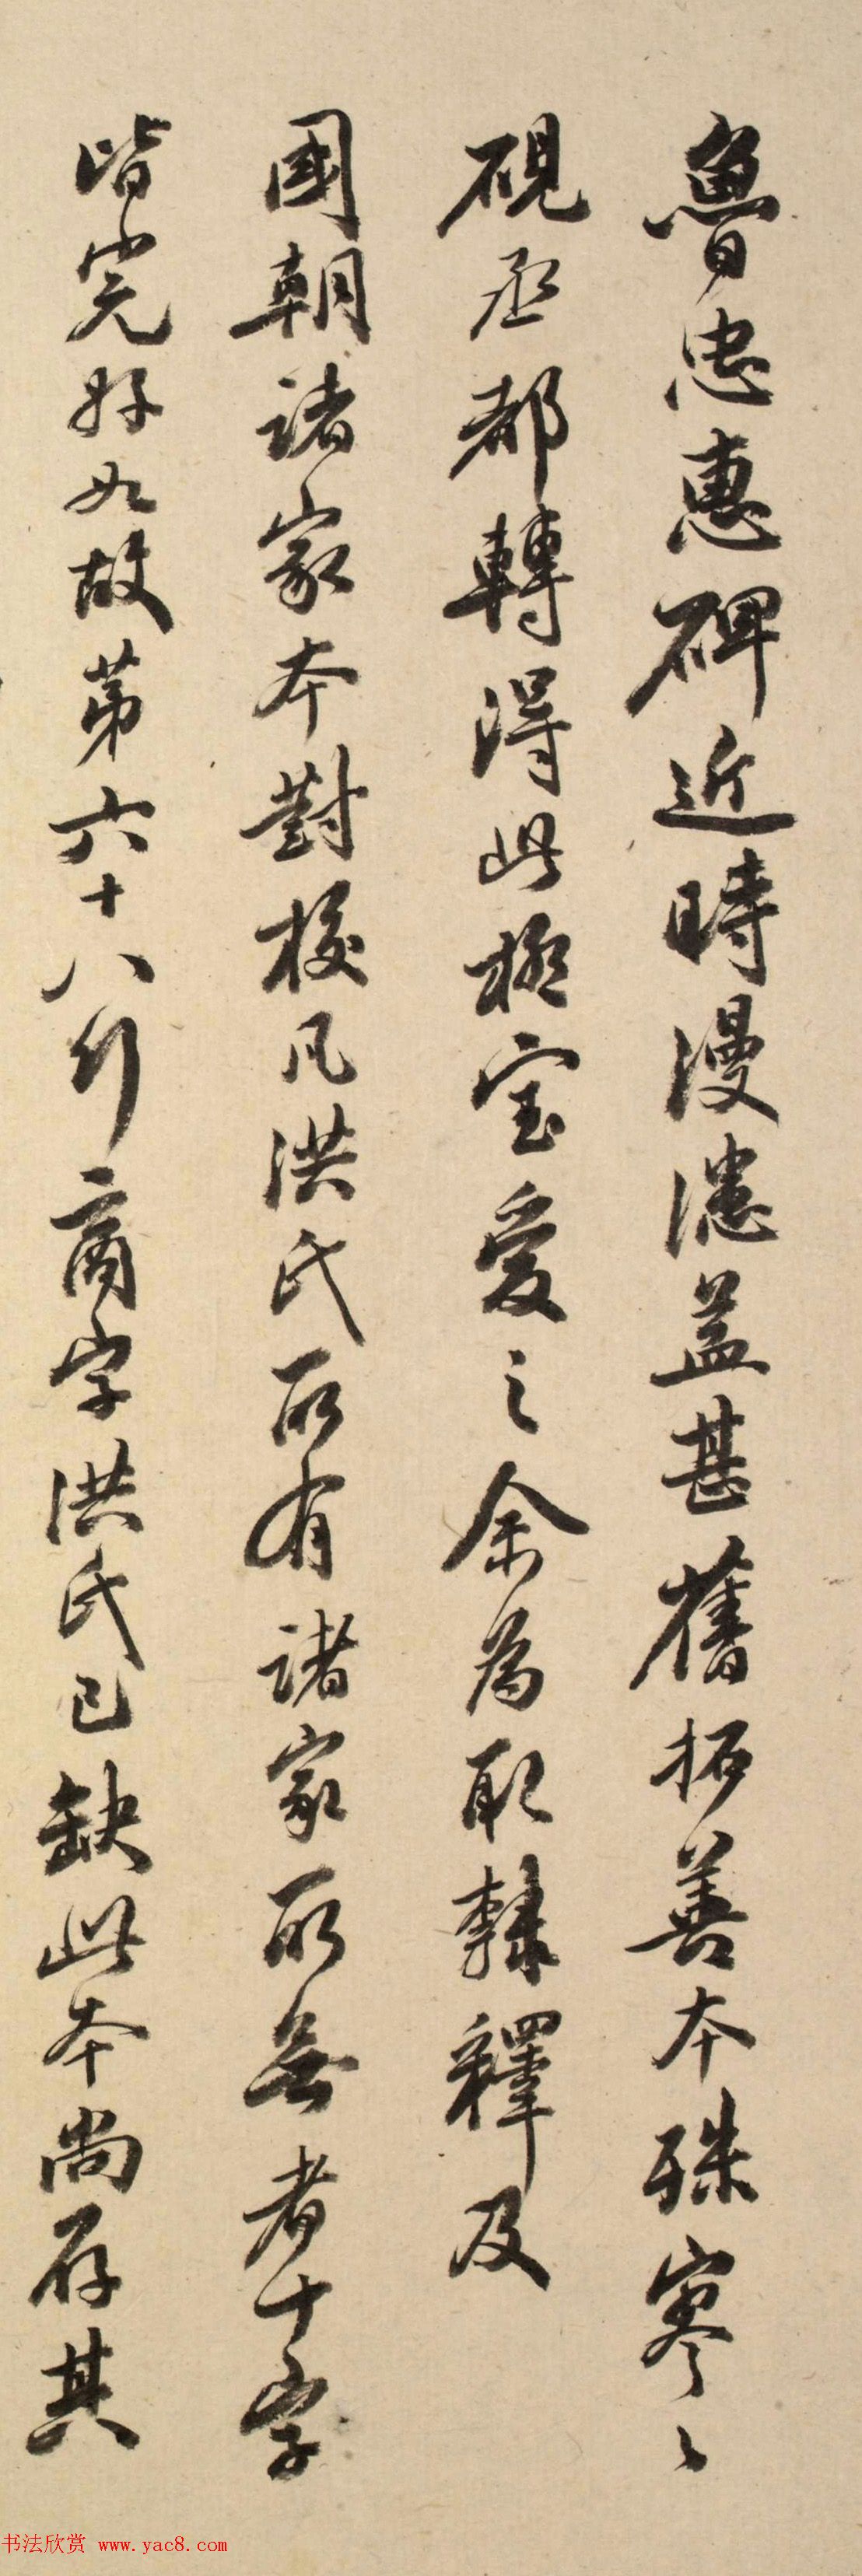 魯忠惠碑近時漫漶益甚舊拓善本殊寥〻
硯丞都轉得此極宝愛之余為取隸釋及
國朝諸家本對校凡洪氏所有諸家所無者十字
皆完好如故第六十八行商字洪氏已缺此本尚存其
书法欣赏 www.yac8.com